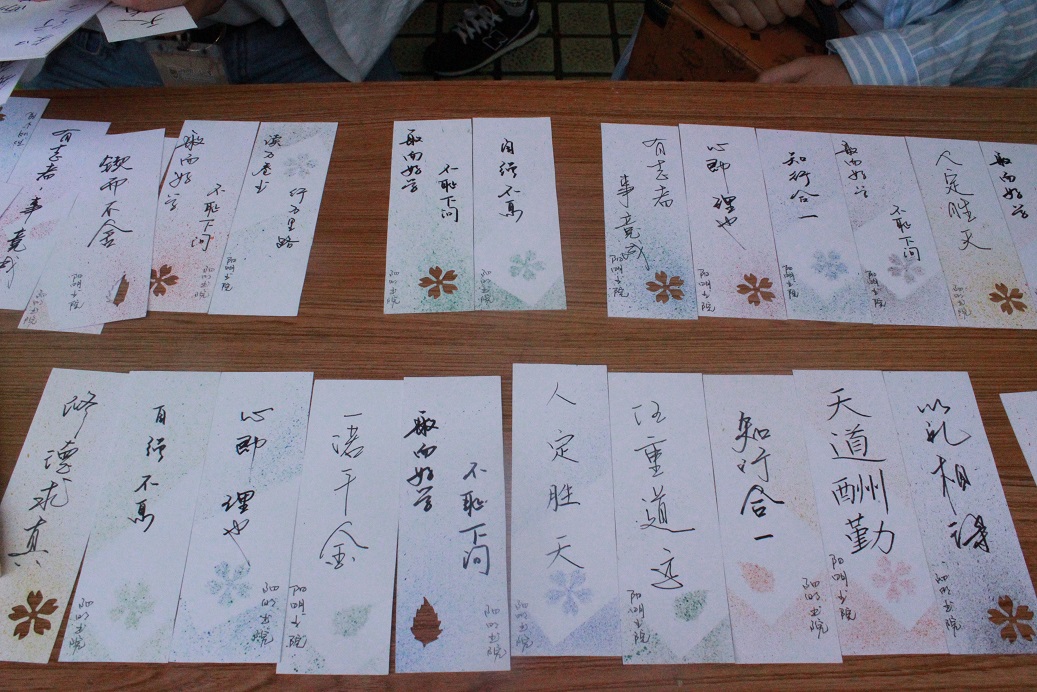 有志者,事竟成
锲而不舍
阳明书院
敏而好学
不耻下问
阳明书院
读万卷书
行万里路
阳明书院
敏而好学
不耻下问
阳明书院
自强不息
阳明书院
有志者
事竟成
阳明书院
心即理也
阳明书院
知行合一
阳明书院
敏而好学
不耻下问
阳明书院
人定胜天
阳明书院
敏而好学
修德求真
自强不息
阳明书院
心即理也
阳明书院
一诺千金
阳明书院
敏而好学
不耻下问
阳明书院
人定胜天
阳明书院
任重道远
阳明书院
知行合一
阳明书院
天道酬勤
阳明书院
以礼相
阳明书院